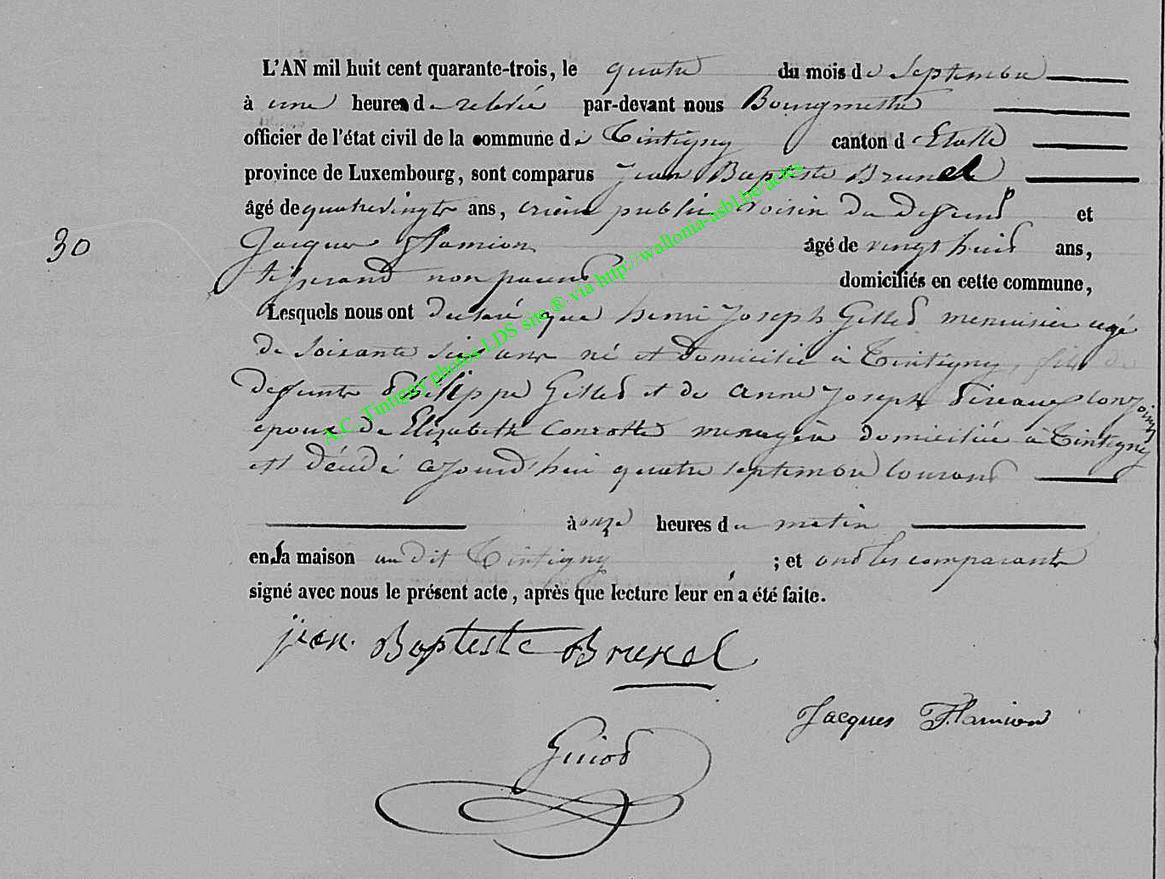 L'AN mil huit cent quarante-trois, le quatre du mois de Septembre
à une heures de relevée par-devant nous Bourgmestre
officier de l'état civil de la commune de Tintigny canton d'Etalle
province de Luxembourg, sont comparus Jean Baptiste Brunel
âgé de quatrevingts ans, crieur public voisin du deffunt et
30
Jacques Flamion âgé de vingt huit ans,
tisserand non parent domiciliés en cette commune,
Lesquels nous ont declaré que henri Joseph Gilles menuisier agé
de soixante six ans né et domicilié à Tintigny, fils de
deffunts Philippe Gilles et de anne Joseph conjoints
epoux de Elizabeth Conrotte menagère domiciliée à Tintigny
est décédé cejourd'hui quatre septembre courant
à onze heures du matin
en sa maison au dit Tintigny ; et ont les comparants
signé avec nous le présent acte, après que lecture leur en a été faite.
jean Baptiste Brunel
Jacques Flamion
Guiot
A.C. Tintigny photos LDS site ® via http://wallonia-asbl.be/actes